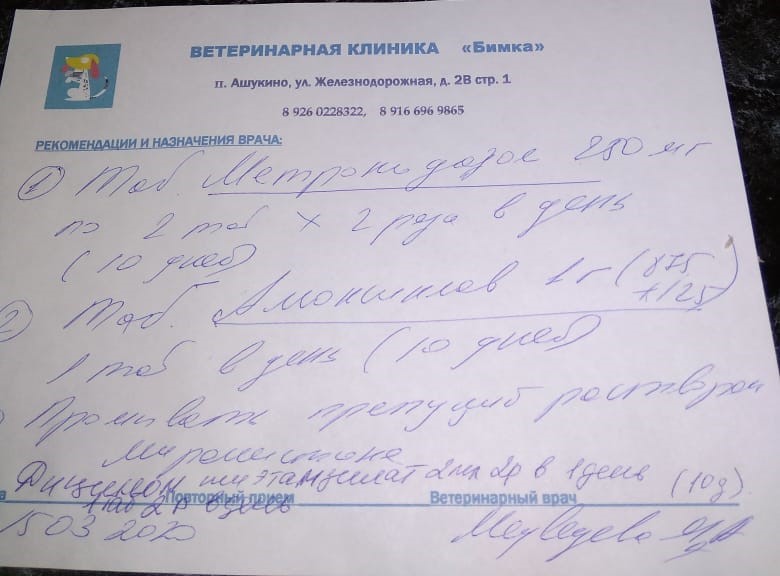 ВЕТЕРИНАРНАЯ КЛИНИКА «Бимка»
п. Ашукино, ул. Железнодорожная, д. 2В стр. 1
8 926 0228322, 8 916 696 9865
РЕКОМЕНДАЦИИ И НАЗНАЧЕНИЯ ВРАЧА:
① Таб. Метронидазол 250 мг
по 2 таб × 2 раза в день
(10 дней)
2 Таб. Амоксиклав 1 г (875
+125)
1 таб в день (10 дней)
Промывать препуций раствором
Мирамистина
Дицинон или этамзилат 2мл 2р в 1день (10д)
1таб 2р в день
Повторный прием Ветеринарный врач
15 03 2020 Медведева